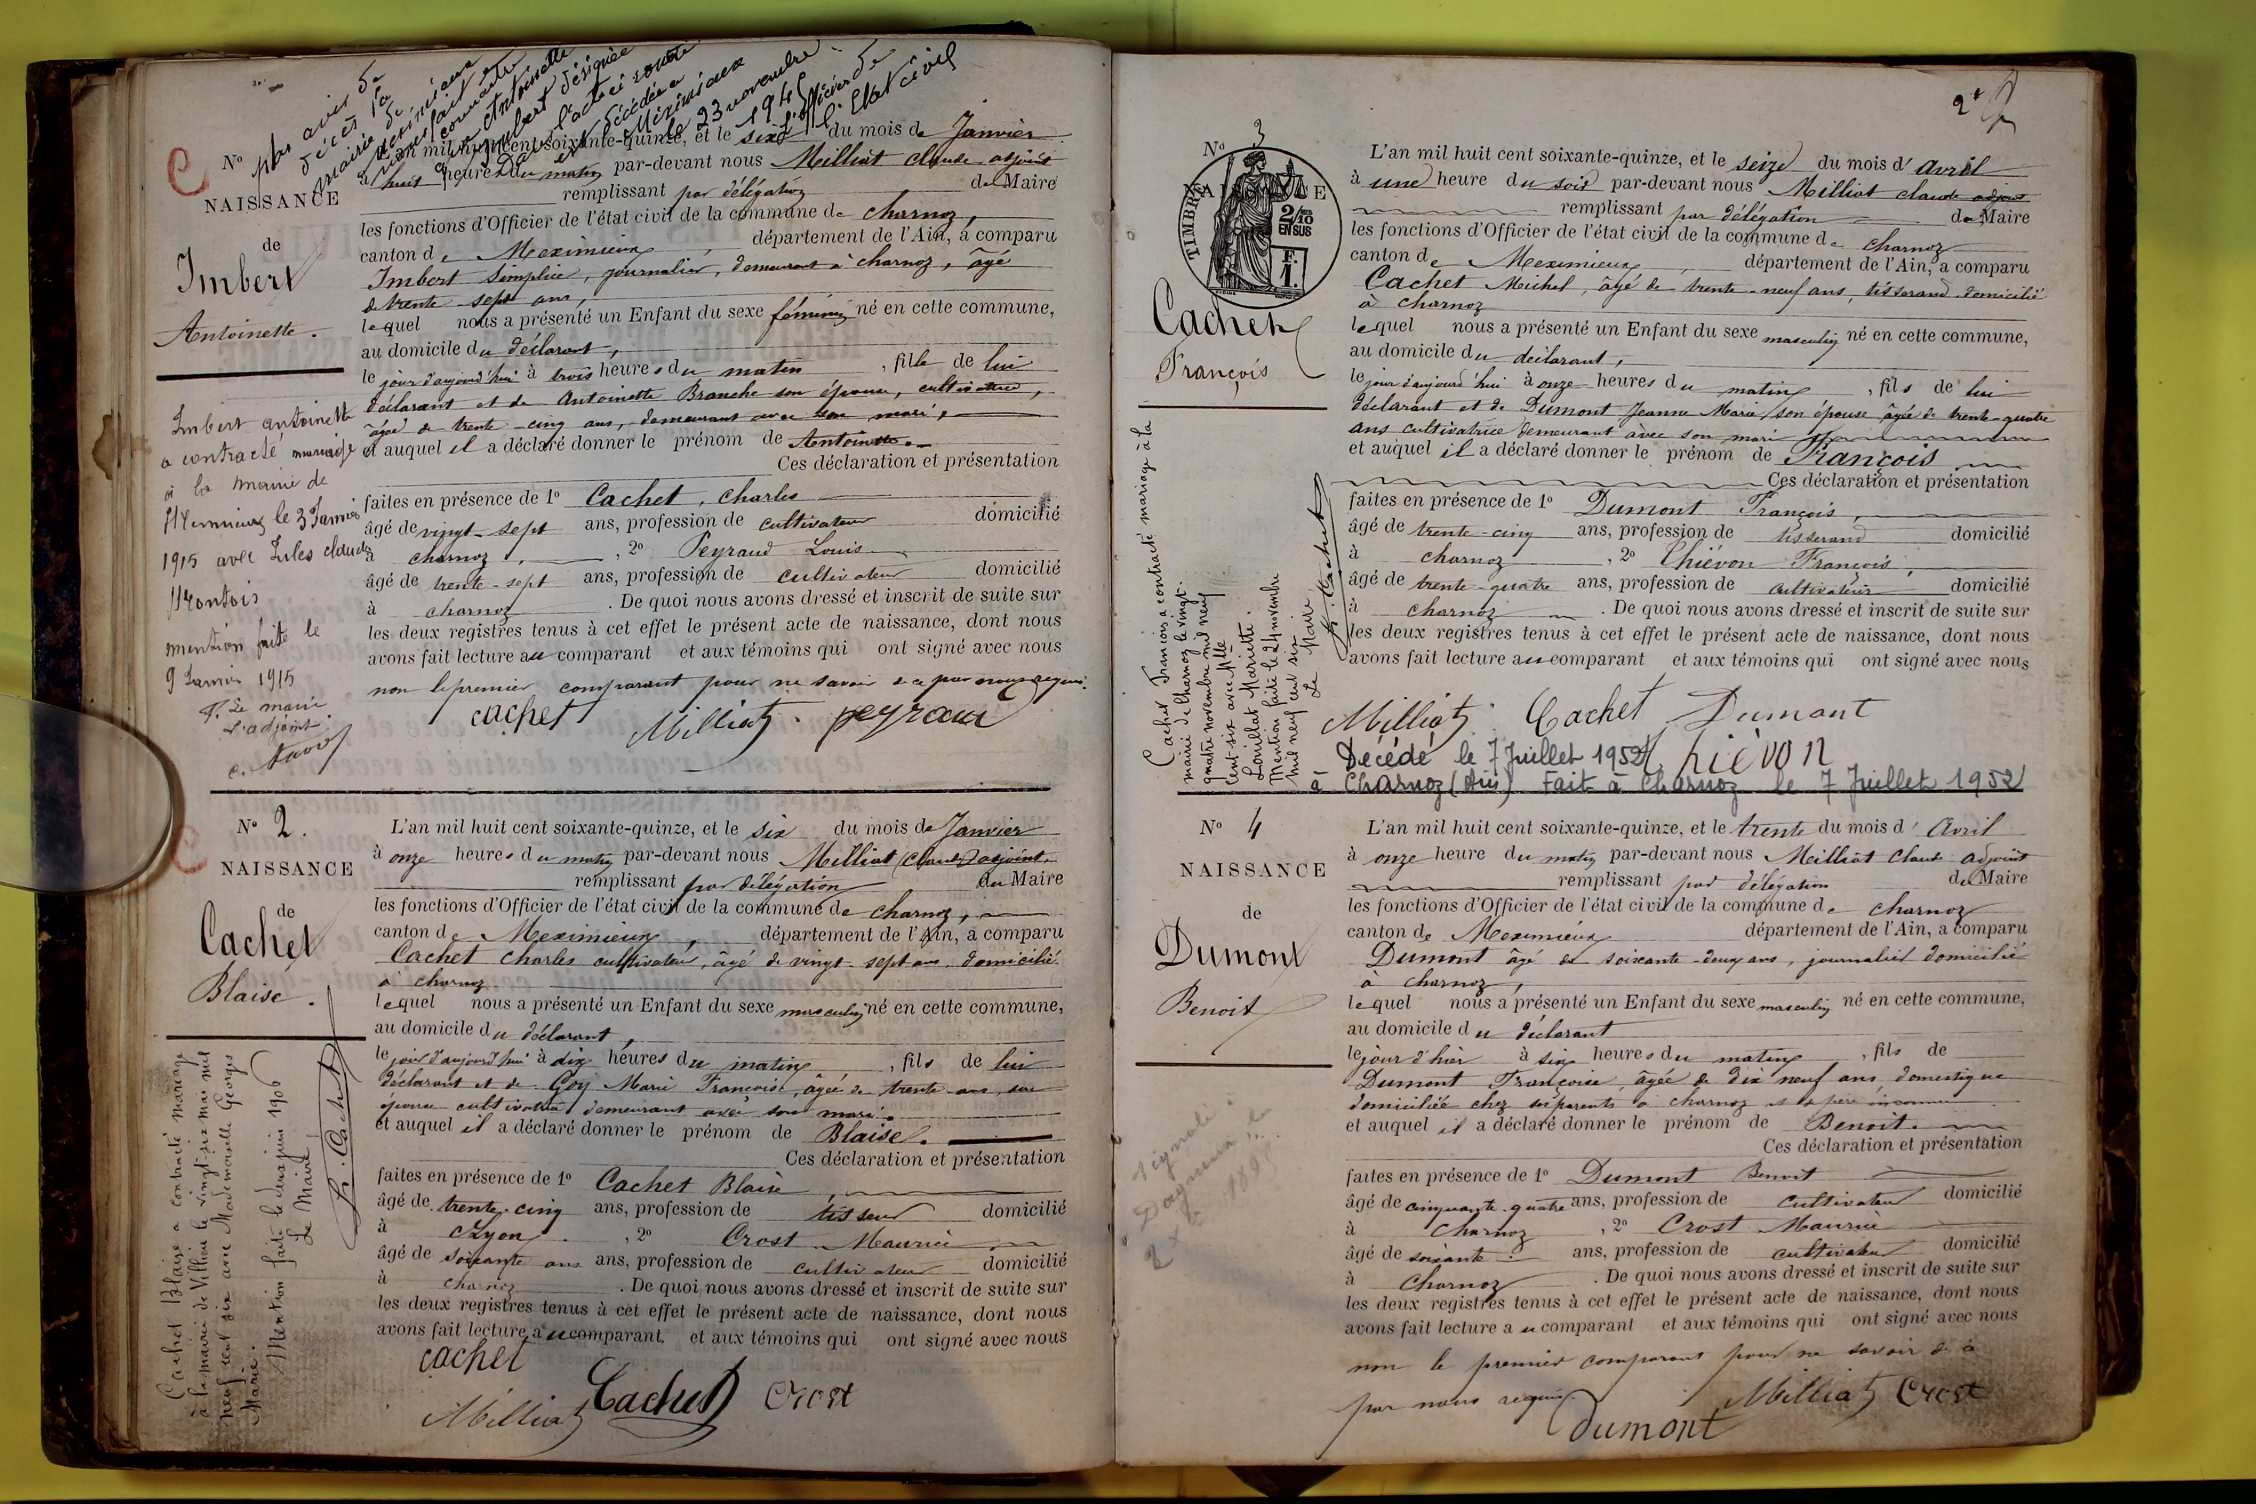 par avis de
décès la
mairie de
Meximieux
nous fait
connaître
que Antoinette
Imbert désignée
Dans l'acte ci contre
est décédée à
Meximieux
le 23 novembre
194
L'officier de
l'Etat civil
C
Nº
NAISSANCE
de
Imbert
Antoinette.
L'an mil huit cent soixante-quinze, et le six du mois de Janvier
à huit heures du matin par-devant nous Milliat claude adjoint
remplissant par délégation de Maire
les fonctions d'Officier de l'état civil de la commune de charnoz,
canton de Meximieux, département de l'Ain, a comparu
Imbert Simplice, journalier, demeurant à charnoz, âgé
de trente-sept ans,
lequel nous a présenté un Enfant du sexe féminin né en cette commune,
au domicile du déclarant,
le jour d'aujourd'hui à trois heures du matin, fille de lui
déclarant et de Antoinette Branche son épouse, cultivatrice,
âgée de trente-cinq ans, demeurant avec son mari,
et auquel il a déclaré donner le prénom de Antoinette.
Ces déclaration et présentation
faites en présence de 1º Cachet, Charles
âgé de vingt-sept ans, profession de cultivateur domicilié
à charnoz, 2º Peyraud Louis
âgé de trente-sept ans, profession de cultivateur domicilié
à charnoz. De quoi nous avons dressé et inscrit de suite sur
les deux registres tenus à cet effet le présent acte de naissance, dont nous
avons fait lecture au comparant et aux témoins qui ont signé avec nous
non le premier comparant pour ne savoir de ce par nous requis.
cachet Milliat peyraud
Imbert antoinette
a contracté mariage
à la mairie de
Meximieux le 3 Janvier
1915 avec Jules claude
Montois
mention faite le
9 Janvier 1915
P. Le maire
L'adjoint
Nº 2.
C
NAISSANCE
de
Cachet
Blaise.
L'an mil huit cent soixante-quinze, et le six du mois de Janvier
à onze heures du matin par-devant nous Milliat (claude) adjoint
remplissant par délégation du Maire
les fonctions d'Officier de l'état civil de la commune de charnoz,
canton de Meximieux, département de l'Ain, a comparu
Cachet Charles cultivateur, âgé de vingt-sept ans, domicilié
à charnoz
lequel nous a présenté un Enfant du sexe masculin né en cette commune,
au domicile du déclarant,
le jour d'aujourd'hui à dix heures du matin, fils de lui
déclarant et de Goy Marie Françoise, âgée de trente ans, son
épouse cultivatrice demeurant avec son mari.
et auquel il a déclaré donner le prénom de Blaise.
Ces déclaration et présentation
faites en présence de 1º Cachet Blaise,
âgé de trente-cinq ans, profession de tisseur domicilié
à Lyon, 2º Crost Maurice
âgé de soixante ans ans, profession de cultivateur domicilié
à charnoz. De quoi nous avons dressé et inscrit de suite sur
les deux registres tenus à cet effet le présent acte de naissance, dont nous
avons fait lecture au comparant et aux témoins qui ont signé avec nous
cachet
Milliat Cachet Crost
Cachet Blaise a contracté mariage
à la mairie de Villieu le vingt-six mai mil
neuf cent six avec Mademoiselle Georges
Marie.
Mention faite le deux juin 1906
Le Maire
Cachet
2e
Nº 3
NAISSANCE
TIMBRE
2/10
EN SUS
F.
1.
Cachet
François
L'an mil huit cent soixante-quinze, et le seize du mois d'avril
à une heure du soir par-devant nous Milliat claude adjoint
remplissant par délégation du Maire
les fonctions d'Officier de l'état civil de la commune de charnoz
canton de Meximieux, département de l'Ain, a comparu
Cachet Michel, âgé de trente-neuf ans, tisserand domicilié
à charnoz
lequel nous a présenté un Enfant du sexe masculin né en cette commune,
au domicile du déclarant,
le jour d'aujourd'hui à onze heures du matin, fils de lui
déclarant et de Dumont Jeanne Marie, son épouse âgée de trente-quatre
ans cultivatrice demeurant avec son mari
et auquel il a déclaré donner le prénom de François
Ces déclaration et présentation
faites en présence de 1º Dumont François,
âgé de trente-cinq ans, profession de tisserand domicilié
à charnoz, 2º Thiévon François,
âgé de trente-quatre ans, profession de cultivateur domicilié
à charnoz. De quoi nous avons dressé et inscrit de suite sur
les deux registres tenus à cet effet le présent acte de naissance, dont nous
avons fait lecture au comparant et aux témoins qui ont signé avec nous
Milliat Cachet Dumont
Thiévon
Décédé le 7 Juillet 1952
à Charnoz (Ain) Fait à Charnoz le 7 Juillet 1952
Cachet François a contracté mariage à la
mairie de Charnoz le vingt-
quatre novembre mil neuf
cent six avec Mlle
Louillat Mariette.
Mention faite le 24 novembre
mil neuf cent six
Le Maire,
Cachet
Nº 4
NAISSANCE
de
Dumont
Benoit
L'an mil huit cent soixante-quinze, et le trente du mois d'Avril
à onze heure du matin par-devant nous Milliat claude adjoint
remplissant par délégation du Maire
les fonctions d'Officier de l'état civil de la commune de charnoz
canton de Meximieux département de l'Ain, a comparu
Dumont âgé de soixante-deux ans, journalier domicilié
à charnoz,
lequel nous a présenté un Enfant du sexe masculin né en cette commune,
au domicile du déclarant
le jour d'hier à six heures du matin, fils de
Dumont Françoise, âgée de dix neuf ans, domestique
domiciliée chez ses parents à charnoz et de père inconnu
et auquel il a déclaré donner le prénom de Benoit.
Ces déclaration et présentation
faites en présence de 1º Dumont Benoit
âgé de cinquante-quatre ans, profession de cultivateur domicilié
à Charnoz, 2º Crost Maurice
âgé de soixante ans, profession de cultivateur domicilié
à Charnoz. De quoi nous avons dressé et inscrit de suite sur
les deux registres tenus à cet effet le présent acte de naissance, dont nous
avons fait lecture au comparant et aux témoins qui ont signé avec nous
non le premier comparant pour ne savoir de ce
par nous requis. Milliat Crost
Dumont
Signalé à
Dagneux le